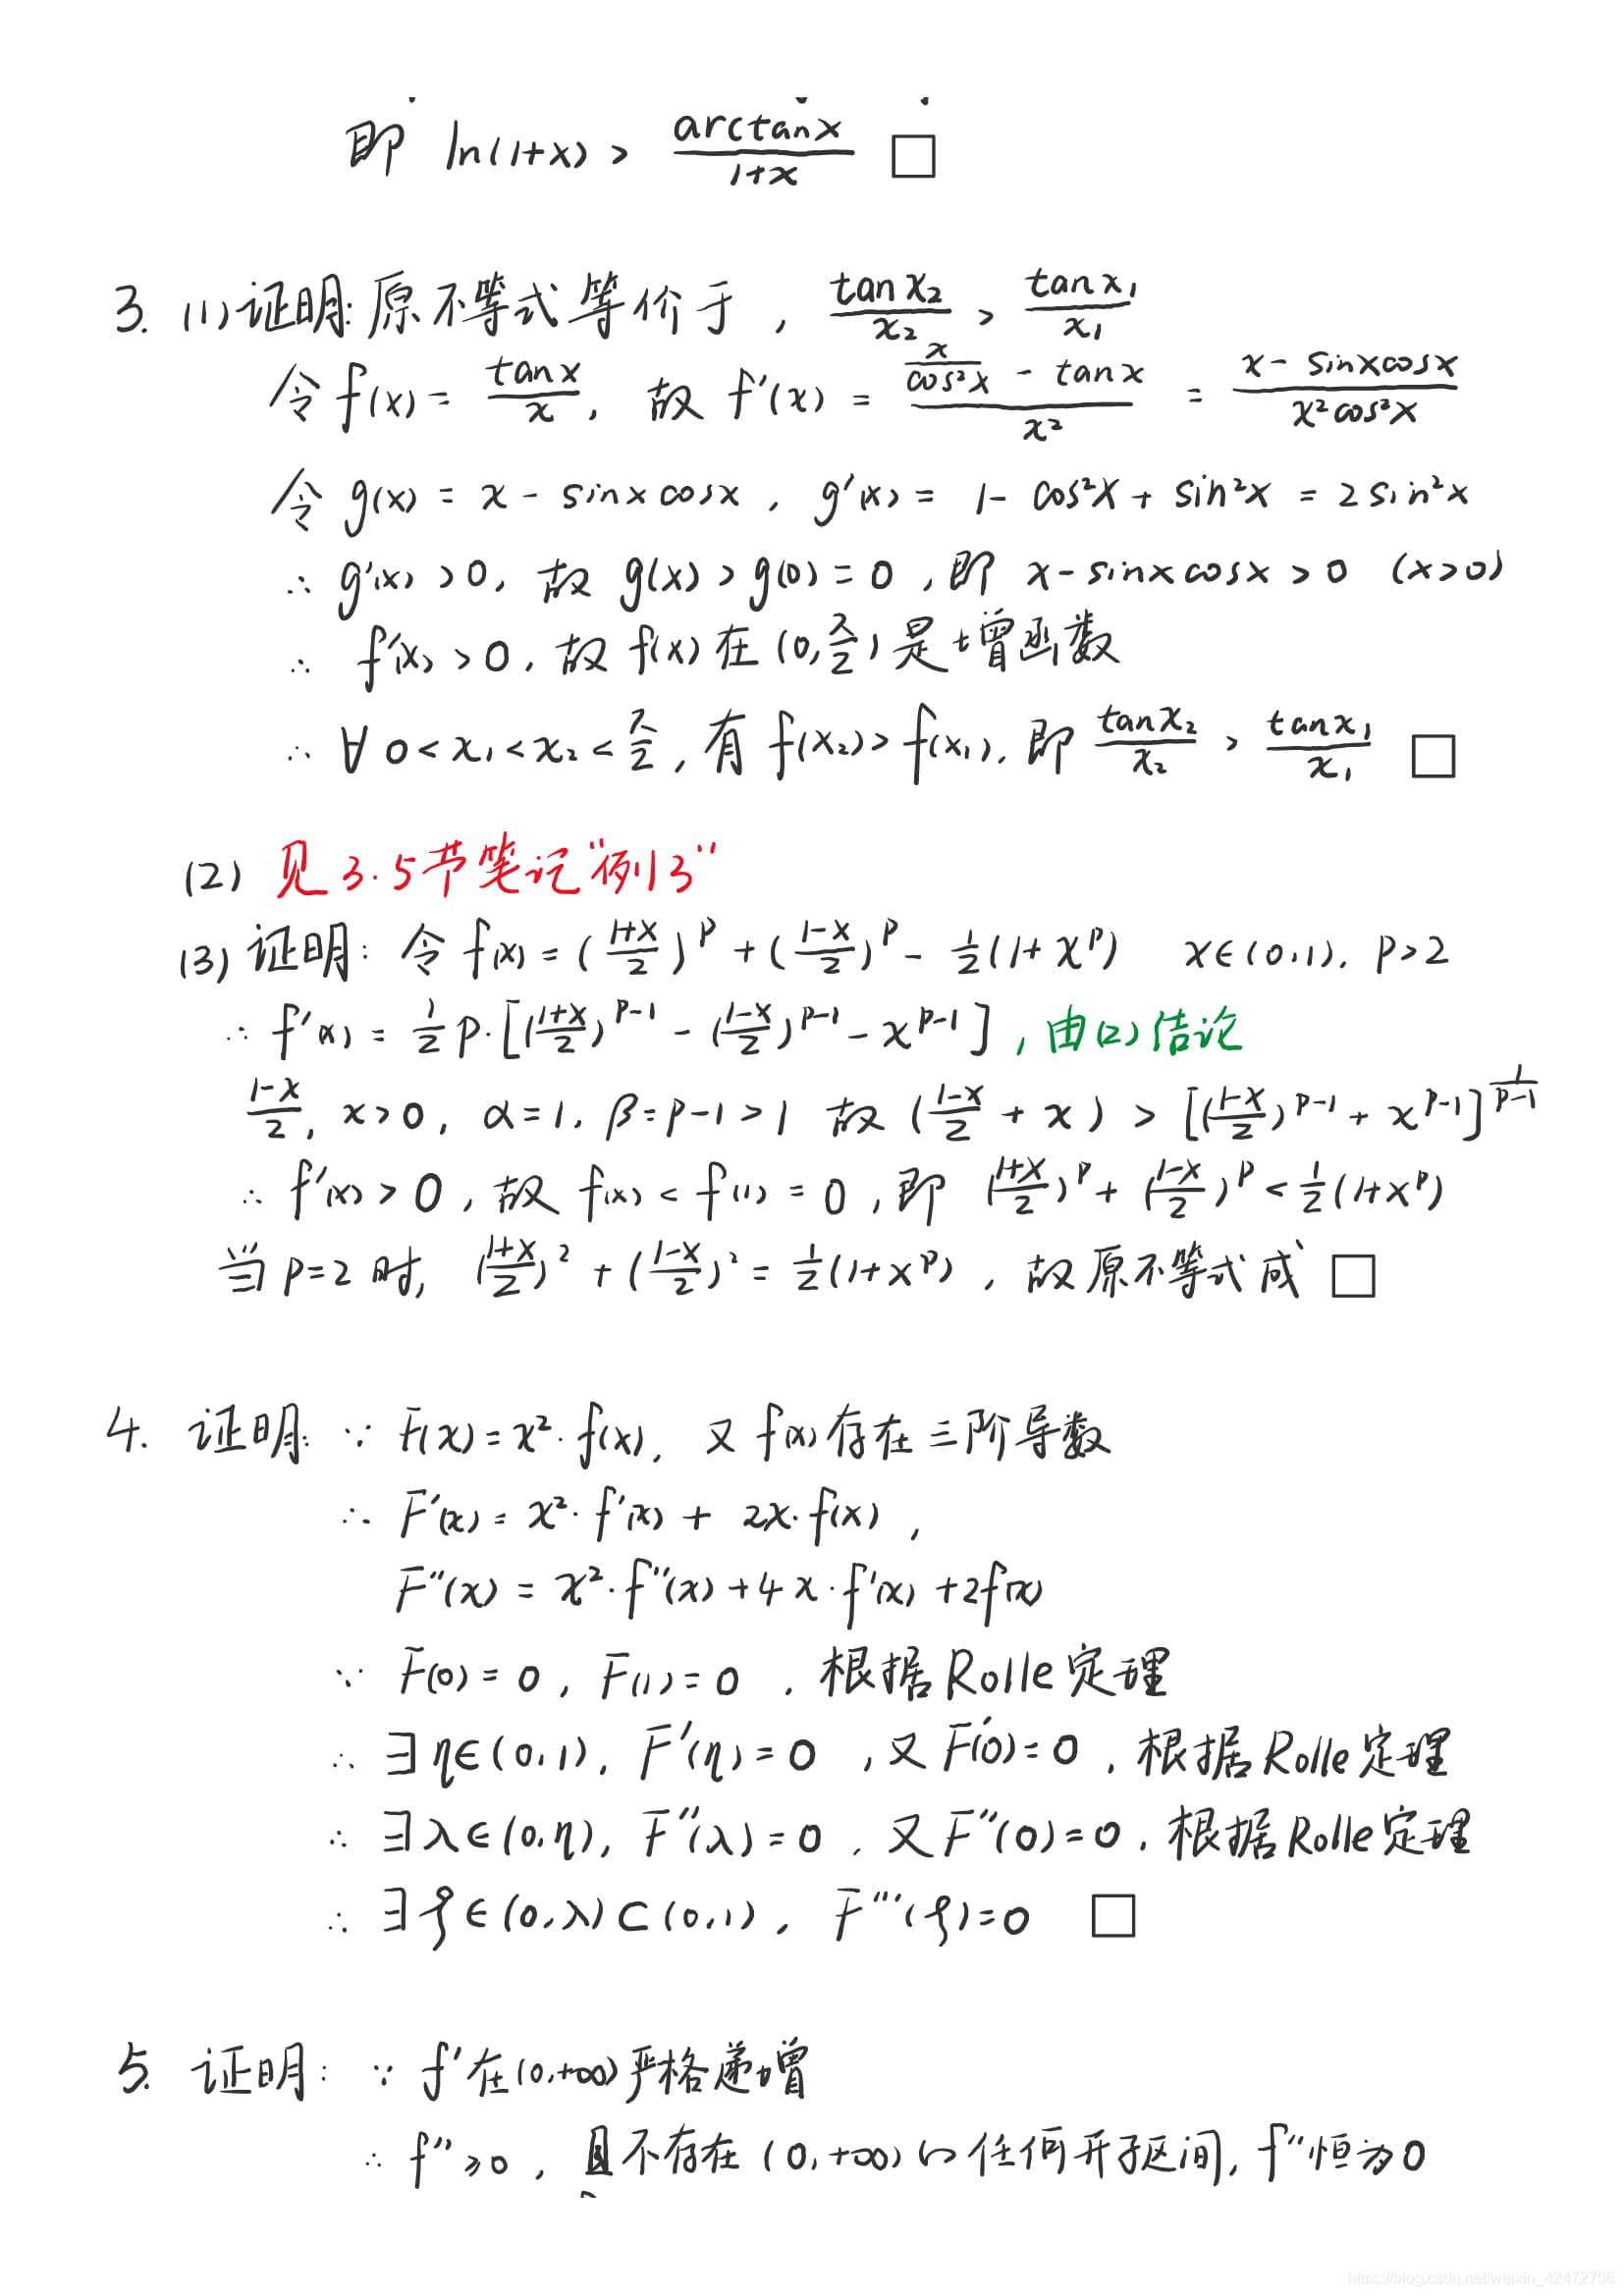 即 ln(1+x) > arctanx/(1+x) □
3. (1)证明: 原不等式等价于, tanx₂/x₂ > tanx₁/x₁
令 f(x) = tanx/x, 故 f'(x) = (x/cos²x - tanx)/x² = (x - sinxcosx)/(x²cos²x)
令 g(x) = x - sinxcosx, g'(x) = 1 - cos²x + sin²x = 2sin²x
∴ g'(x) > 0, 故 g(x) > g(0) = 0, 即 x - sinxcosx > 0 (x>0)
∴ f'(x) > 0, 故 f(x) 在 (0, π/2) 是增函数
∴ ∀ 0 < x₁ < x₂ < π/2, 有 f(x₂) > f(x₁), 即 tanx₂/x₂ > tanx₁/x₁ □
(2) 见 3.5节笔记"例3"
(3) 证明: 令 f(x) = ((1+x)/2)^p + ((1-x)/2)^p - ½(1+x^p) x∈(0,1), p>2
∴ f'(x) = ½p·[((1+x)/2)^(p-1) - ((1-x)/2)^(p-1) - x^(p-1)], 由(2)结论
(1-x)/2, x>0, α=1, β=p-1>1 故 ((1-x)/2 + x) > [((1-x)/2)^(p-1) + x^(p-1)]^(1/(p-1))
∴ f'(x) > 0, 故 f(x) < f(1) = 0, 即 ((1+x)/2)^p + ((1-x)/2)^p < ½(1+x^p)
当 p=2 时, ((1+x)/2)² + ((1-x)/2)² = ½(1+x^p), 故原不等式成 □
4. 证明: ∵ F(x) = x²·f(x), 又 f(x) 存在三阶导数
∴ F'(x) = x²·f'(x) + 2x·f(x),
F''(x) = x²·f''(x) + 4x·f'(x) + 2f(x)
∵ F(0) = 0, F(1) = 0, 根据 Rolle 定理
∴ ∃ η∈(0,1), F'(η) = 0, 又 F'(0) = 0, 根据 Rolle 定理
∴ ∃ λ∈(0,η), F''(λ) = 0, 又 F''(0) = 0, 根据 Rolle 定理
∴ ∃ ξ∈(0,λ)⊂(0,1), F'''(ξ) = 0 □
5. 证明: ∵ f' 在 (0,+∞) 严格递增
∴ f'' ≥ 0, 且不存在 (0,+∞) 的任何开子区间, f'' 恒为 0
https://blog.csdn.net/weixin_42472706